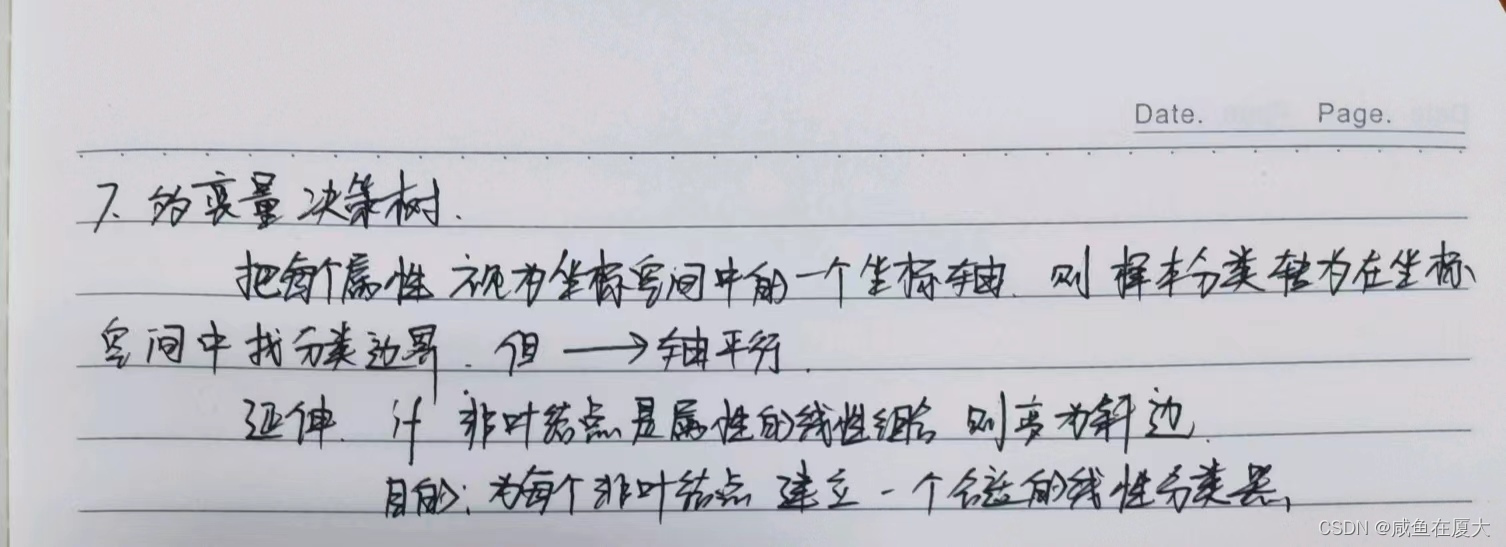 Date. Page.
7. 的变量决策树.
把每个属性视为坐标空间中的一个坐标轴. 则样本分类转为在坐标
空间中找分类边界. 但 → 轴平行.
延伸. if 非叶结点是属性的线性组合 则变为斜边.
目的: 为每个非叶结点建立一个合适的线性分类器.
CSDN @咸鱼在厦大